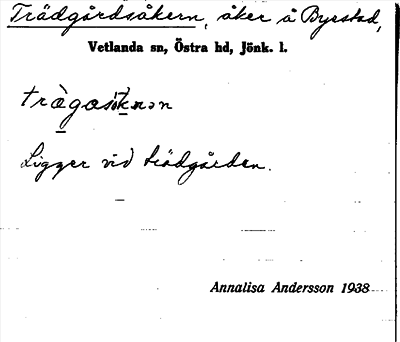 Trädgårdsåkern, åker å Byrstad,
Vetlanda sn, Östra hd, Jönk. l.
Ligger vid trädgården.
Annalisa Andersson 1938